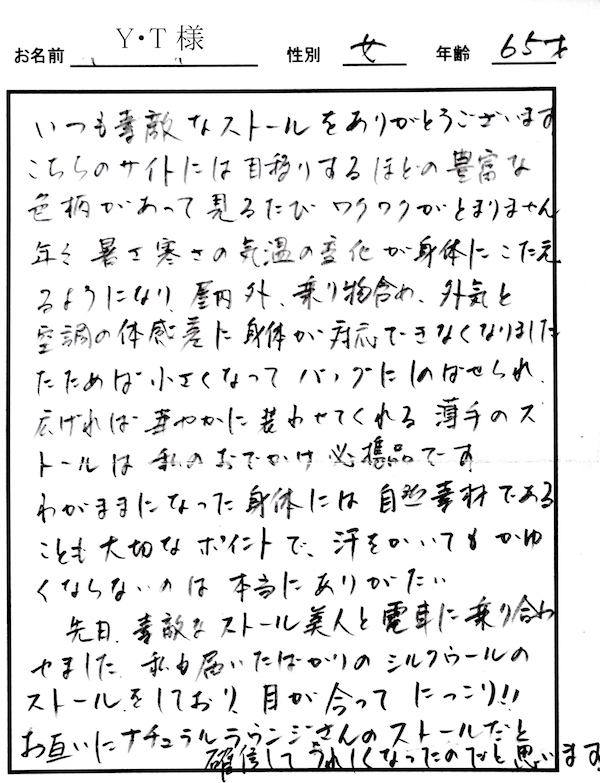 お名前 Y・T 様 性別 女 年齢 65才
いつも素敵なストールをありがとうございます
こちらのサイトには目移りするほどの豊富な
色柄があって見るたびワクワクがとまりません
年々暑さ寒さの気温の変化が身体にこたえ
るようになり、屋内外、乗り物含め、外気と
空調の体感差に身体が対応できなくなりました
たためば小さくなってバッグにしのばせられ、
広げれば華やかに装わせてくれる薄手のス
トールは私のおでかけ必携品です
わがままになった身体には自然素材である
ことも大切なポイントで、汗をかいてもかゆ
くならないのは本当にありがたい
先日、素敵なストール美人と電車に乗り合わ
せました。私も届いたばかりのシルクウールの
ストールをしており、目が合ってにっこり!!
お互いにナチュラルラウンジさんのストールだと
確信してうれしくなったのだと思います